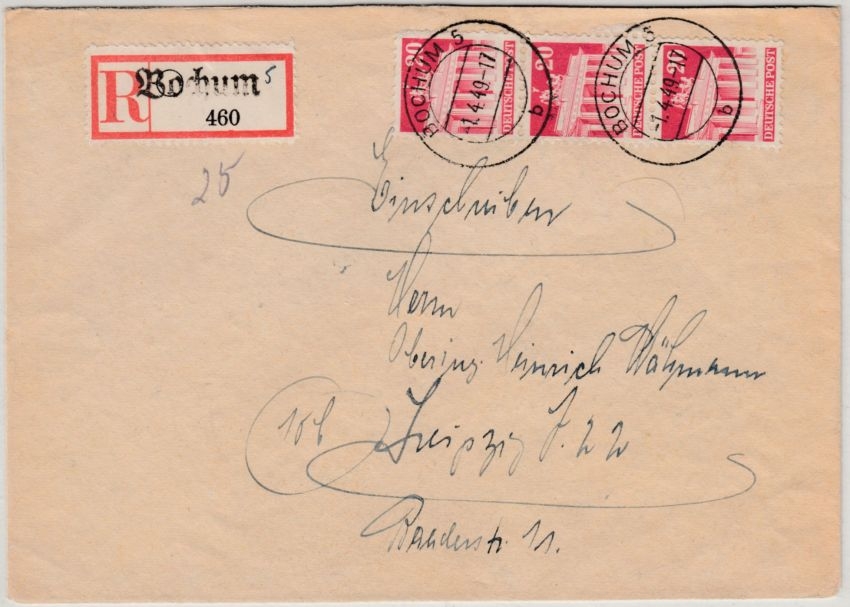 R Bochum 5
460
20 DEUTSCHE POST
20 DEUTSCHE POST
20 DEUTSCHE POST
BOCHUM 5
-1.4.49-17
b
BOCHUM 5
-1.4.49-17
b
25
Einschreiben
Herrn
Obering. Heinrich
(10b) Leipzig 22
11.